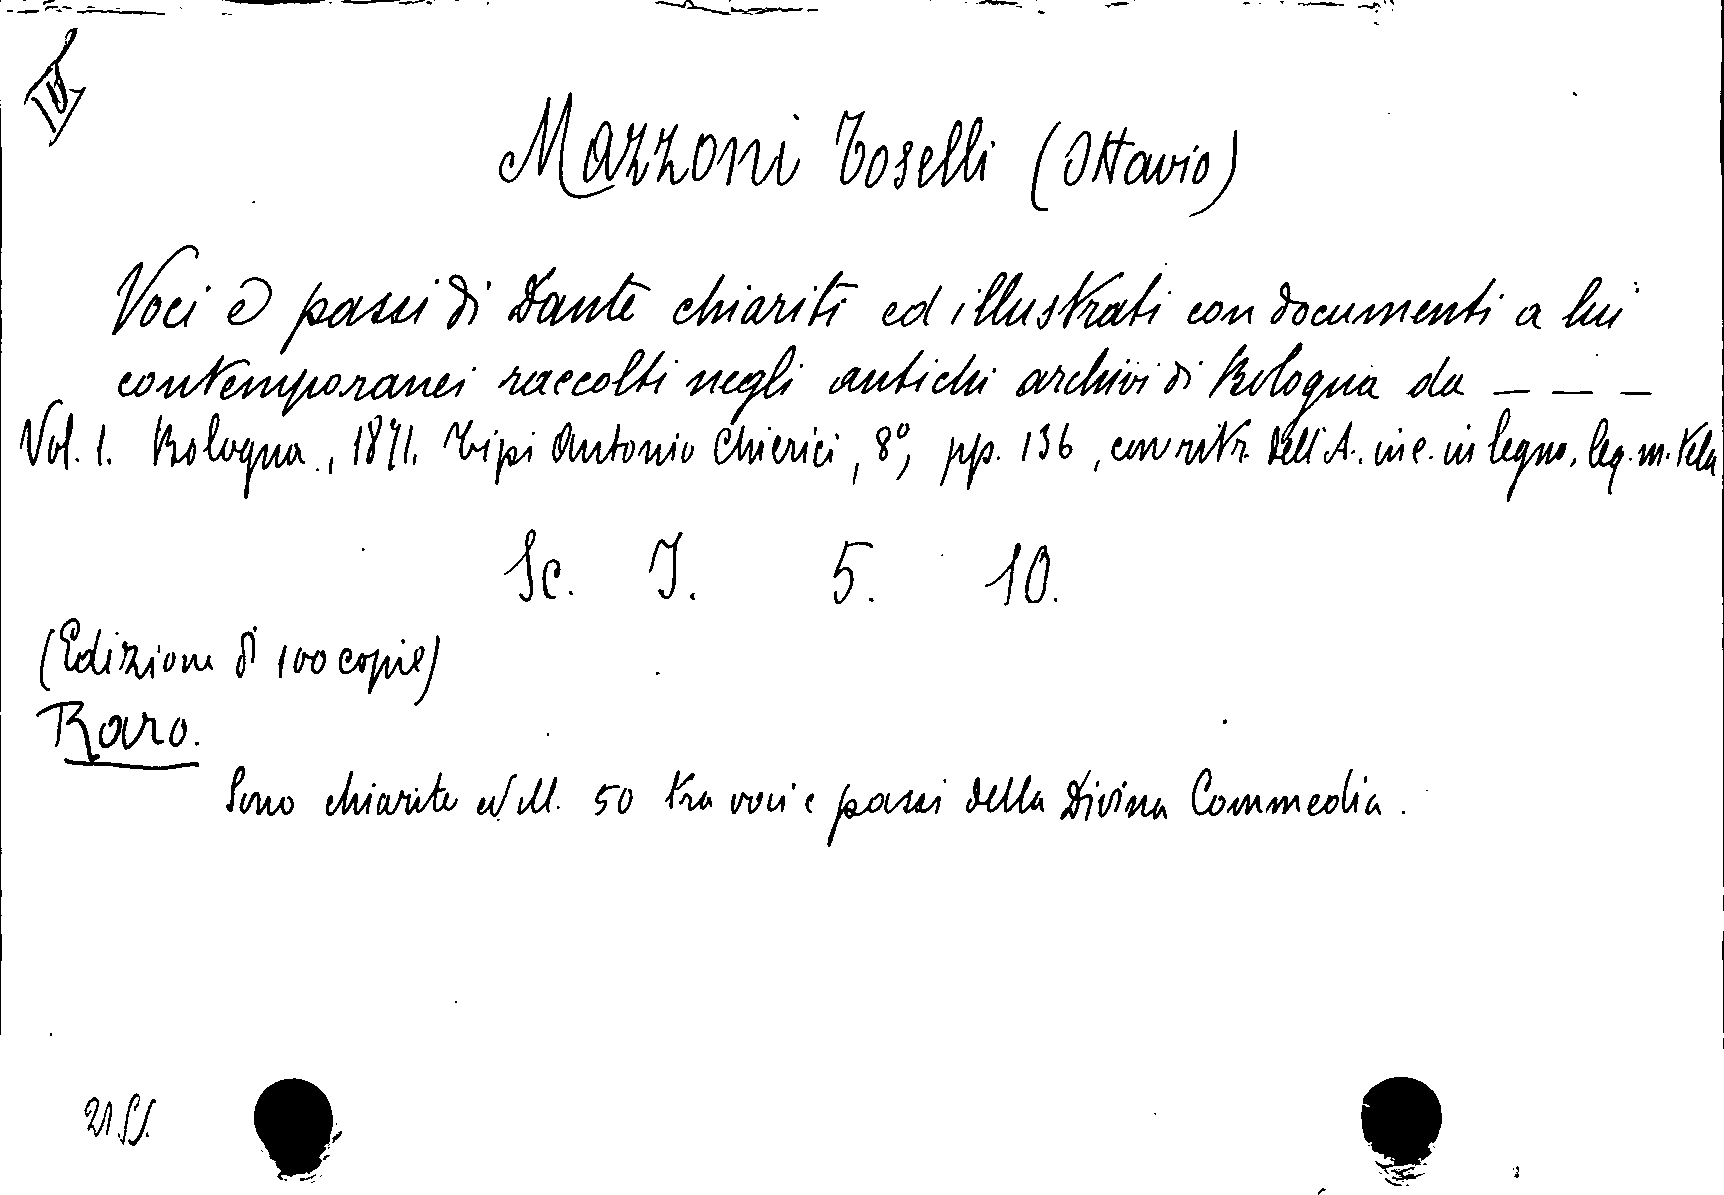 Mazzoni Toselli (Ottavio)
Voci e passi di Dante chiariti ed illustrati con documenti a lui
contemporanei raccolti negli antichi archivi di Bologna da _ _ _
Vol. 1. Bologna, 1871. Tipi Antonio Chierici, 8°, pp. 136, con ritr. dell'A., inc. in legno, leg. m. tela
Sc. I. 5. 10.
(Edizione di 100 copie)
Raro.
Sono chiarite 50 tra voci e passi della Divina Commedia.